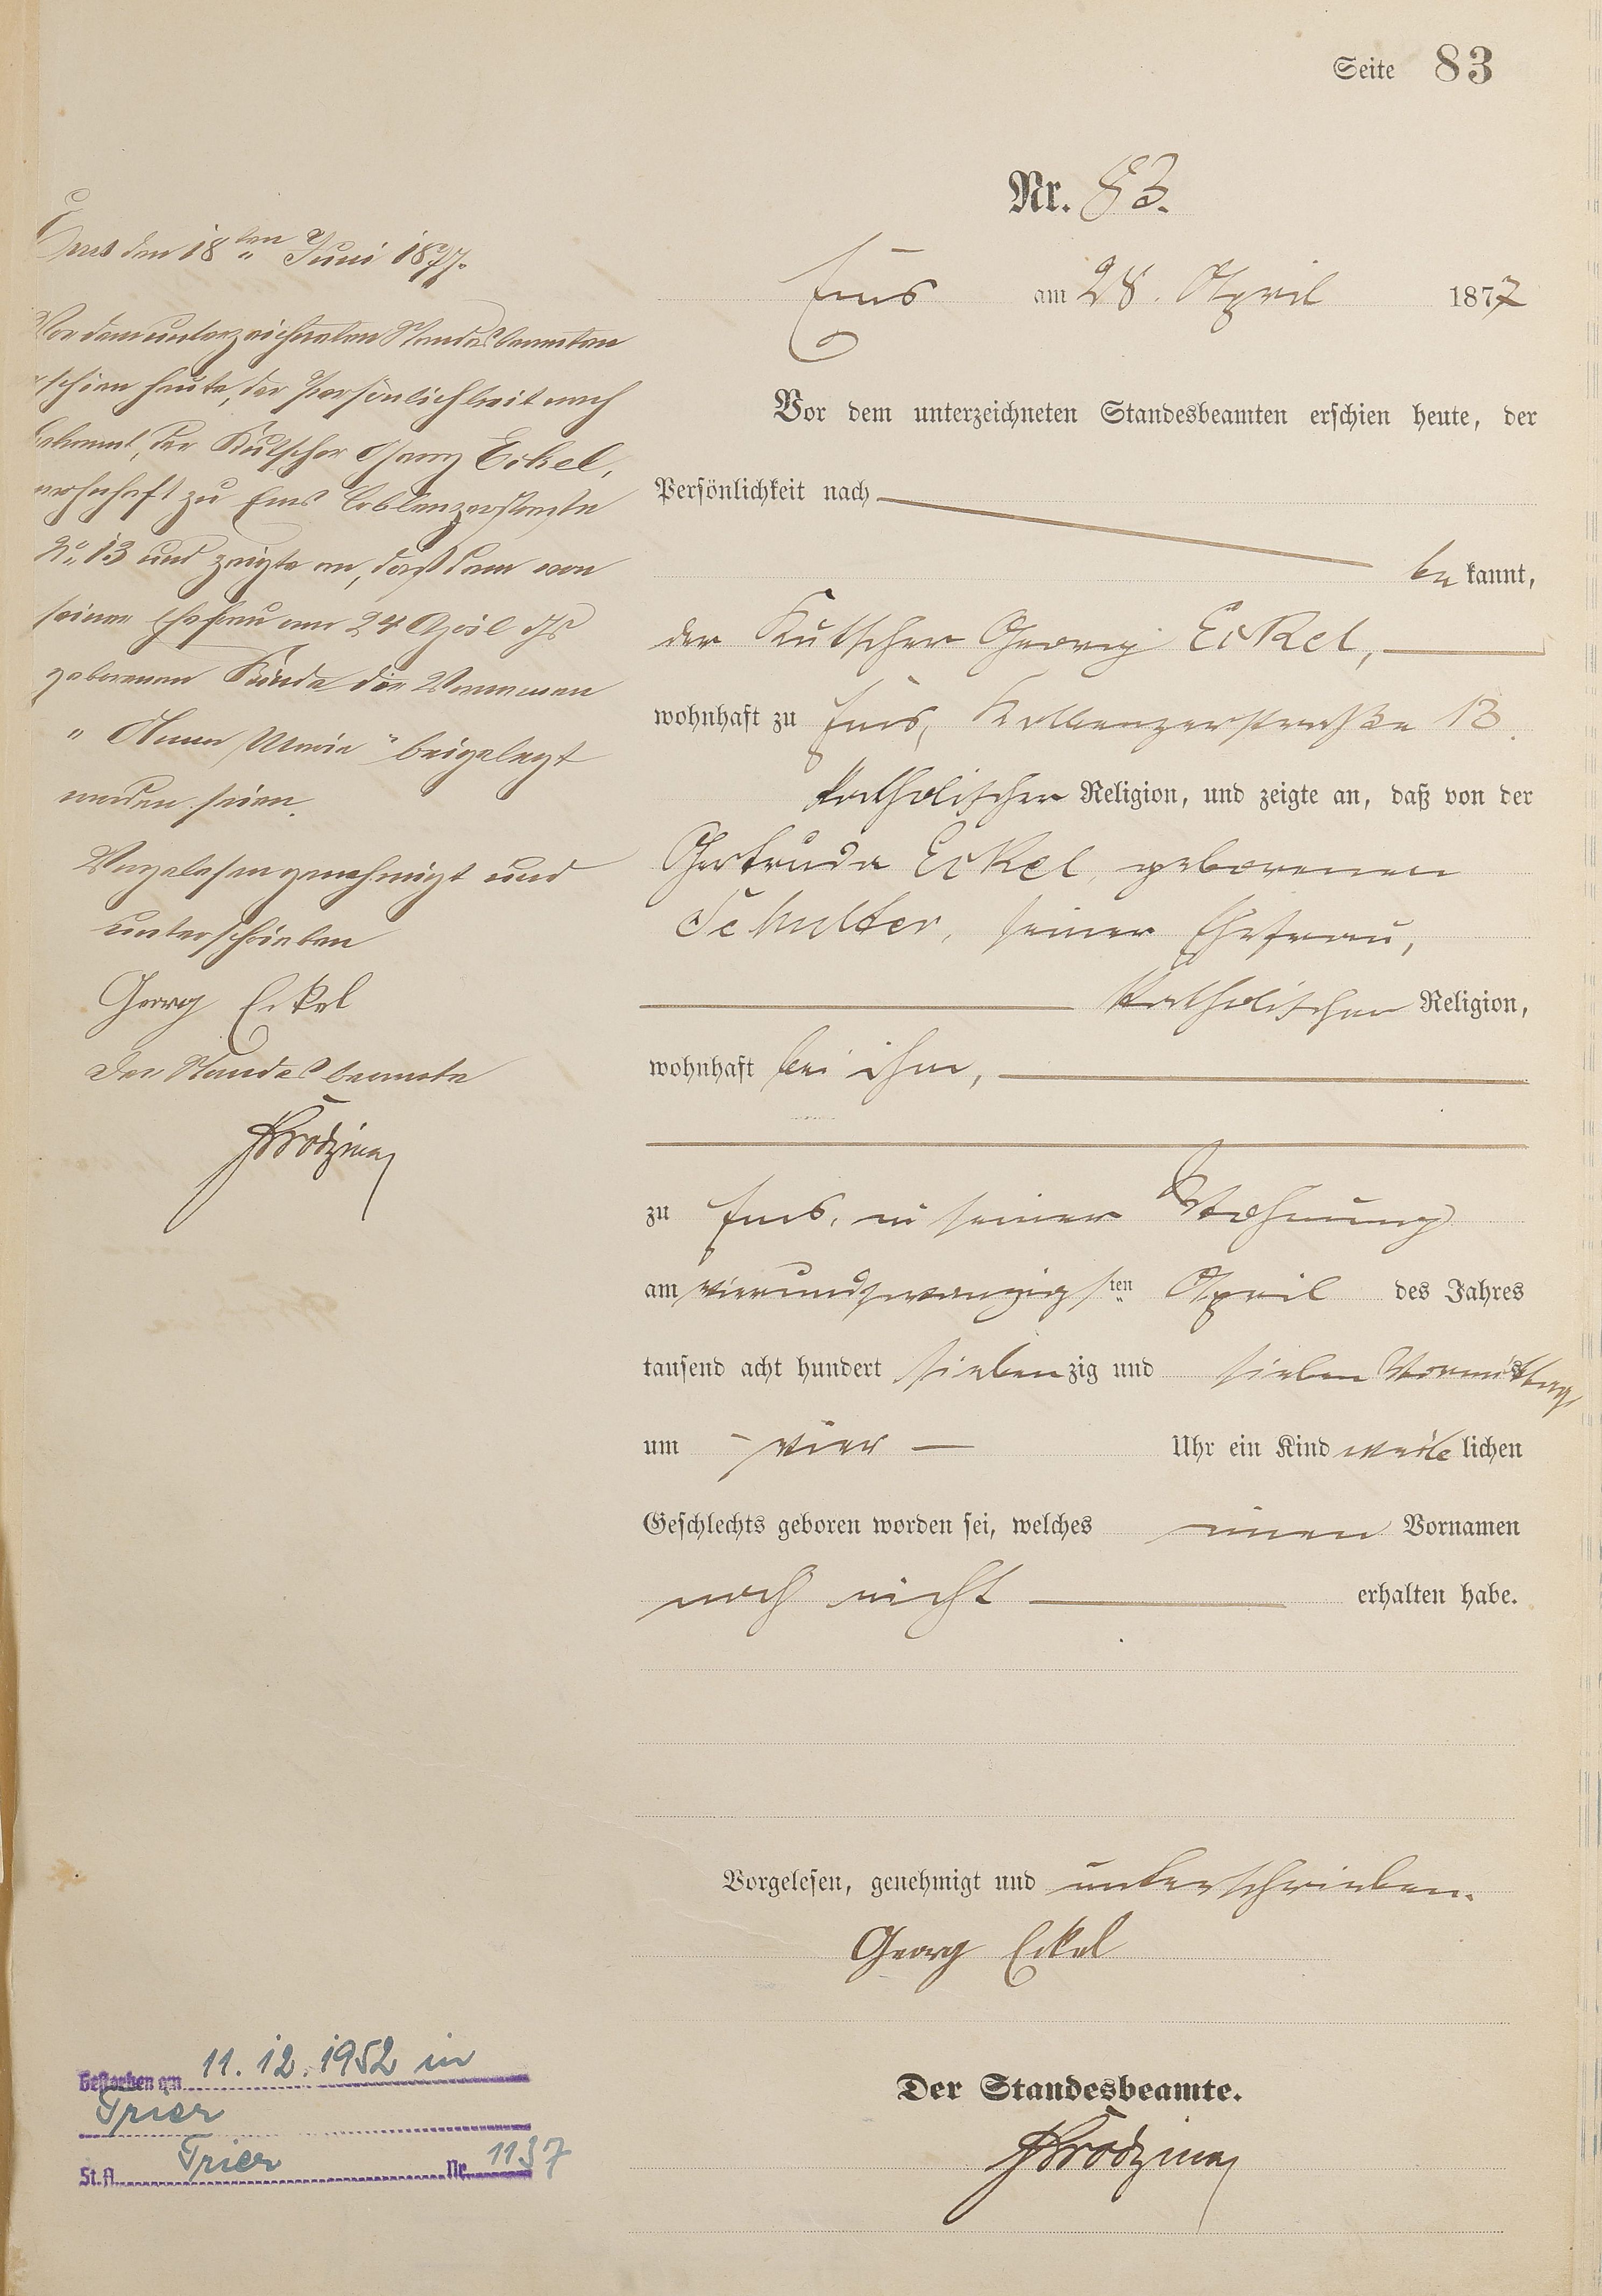 Seite 83
Nr. 83.
Ems am 28. April 1877
Vor dem unterzeichneten Standesbeamten erschien heute, der
Persönlichkeit nach
be kannt,
der Kutscher Georg Eckel,
wohnhaft zu Ems, Koblenzerstraße 13.
katholischer Religion, und zeigte an, daß von der
Gertruda Eckel, geborenen
Schulter, seiner Ehefrau,
katholischer Religion,
wohnhaft bei ihm,
zu Ems, in seiner Wohnung
am vierundzwanzigsten April des Jahres
tausend acht hundert siebenzig und sieben Vormittags
um vier Uhr ein Kind weiblichen
Geschlechts geboren worden sei, welches einen Vornamen
noch nicht erhalten habe.
Vorgelesen, genehmigt und unterschrieben.
Georg Eckel
Der Standesbeamte.
Ems den 18ten Juni 1877.
Vor dem unterzeichneten Standesbeamten
erschien heute, der Persönlichkeit nach
bekannt, der Kutscher Georg Eckel,
wohnhaft zu Ems Coblenzerstraße
No. 13 und zeigte an, daß dem von
seiner Ehefrau am 24 April d Js
geborenen Kinde die Vornamen
„Anna Maria" beigelegt
worden seien.
Vorgelesen genehmigt und
unterschrieben
Georg Eckel
Der Standesbeamte
Gestorben am 11.12.1952 in
Trier
St.A. Trier Nr. 1137